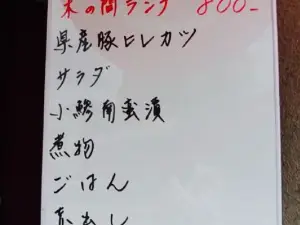 木の間ランチ 800-
県産豚ヒレカツ
サラダ
小鯵南蛮漬
煮物
ごはん